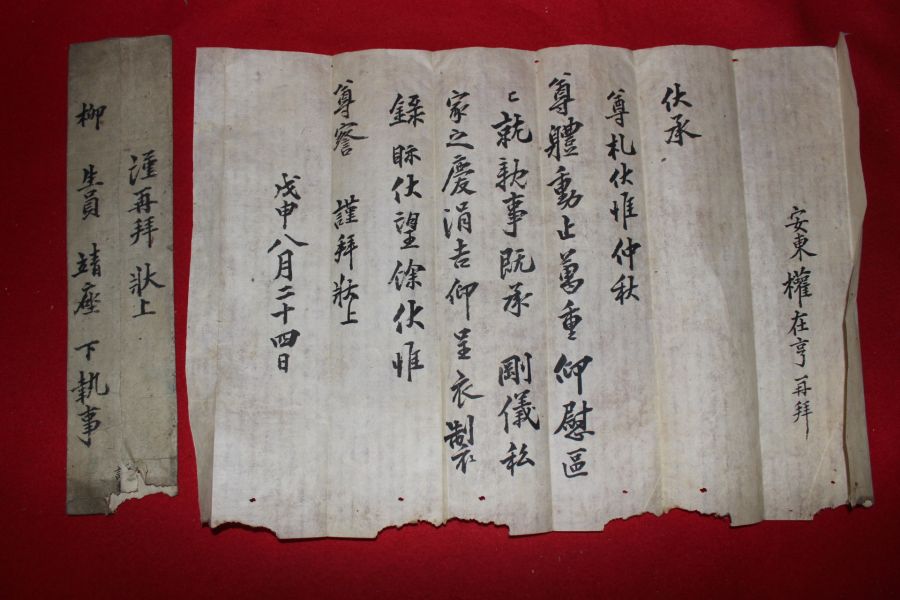 安東 權在亨 再拜
伏承
尊札伏惟仲秋
尊體動止萬重仰慰區
〻就親事旣承 剛儀私
家之慶涓吉仰呈衣製
錄眎伏望餘伏惟
尊察 謹拜狀上
戊申八月二十四日
謹再拜 狀上
柳 生員 靖座 下執事